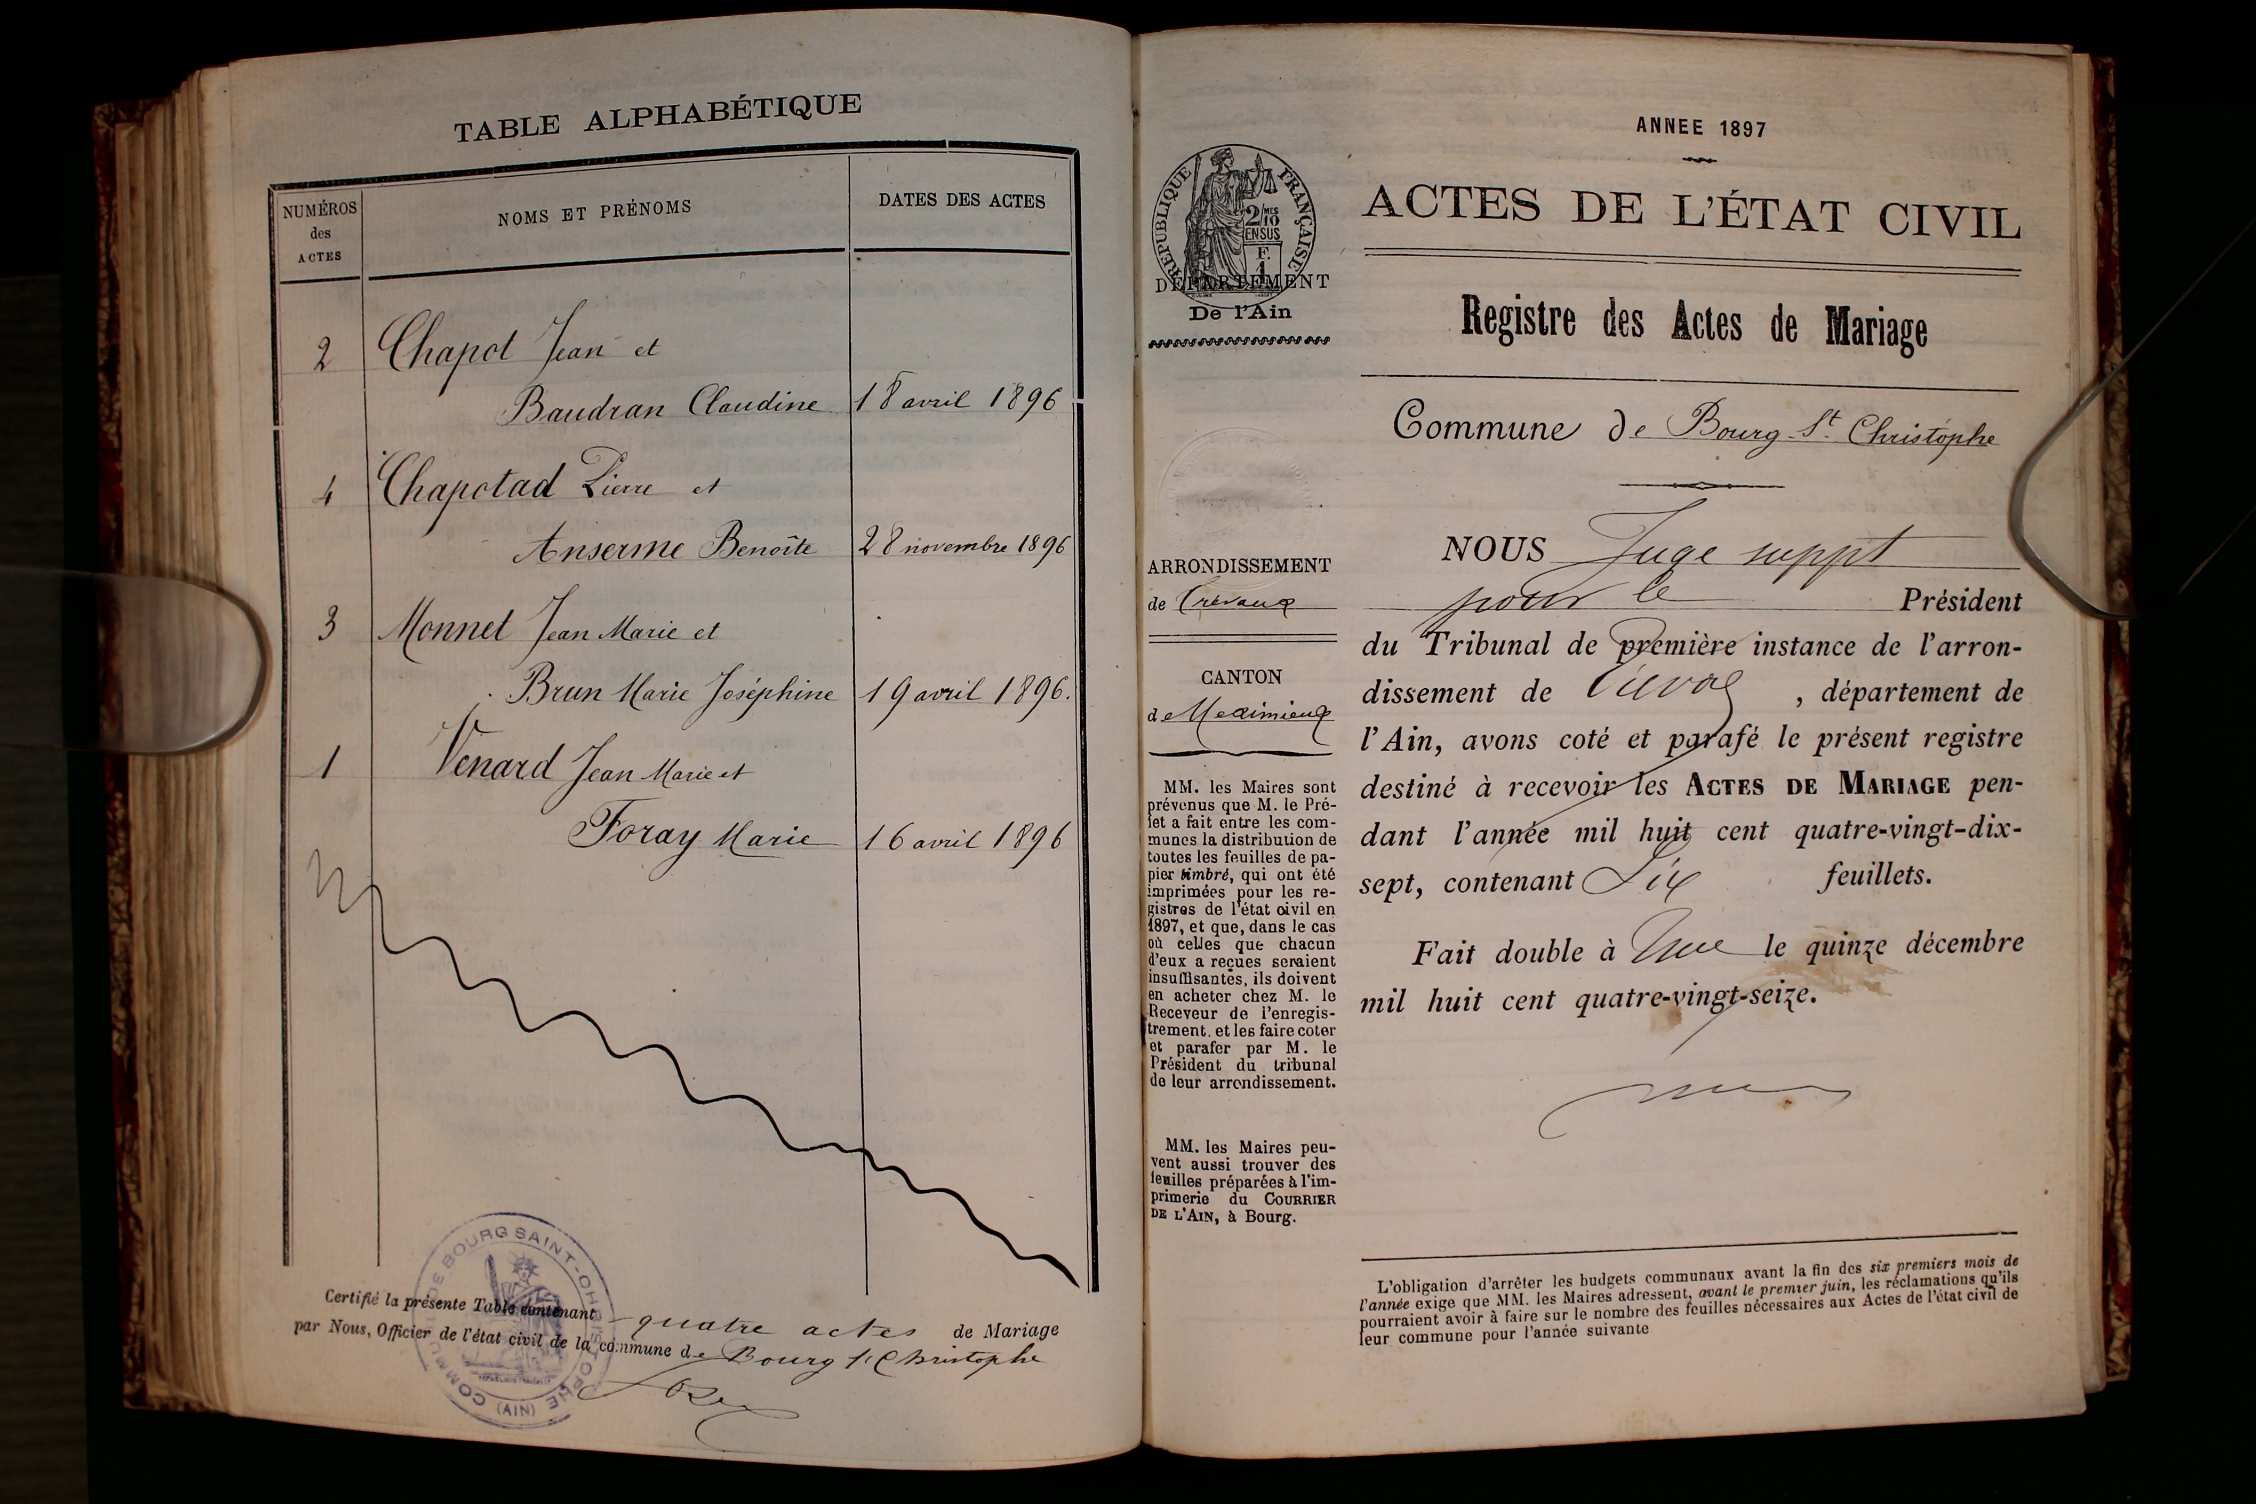 TABLE ALPHABÉTIQUE
NUMÉROS des ACTES
NOMS ET PRÉNOMS
DATES DES ACTES
2 Chapot Jean et
Baudran Claudine 18 avril 1896
4 Chapotad Pierre et
Anserme Benoîte 28 novembre 1896
3 Monnet Jean Marie et
Brun Marie Joséphine 19 avril 1896.
1 Venard Jean Marie et
Foray Marie 16 avril 1896
Certifié la présente Table contenant quatre actes de Mariage
par Nous, Officier de l'état civil de la commune de Bourg St Christophe
COMMUNE DE BOURG SAINT-CHRISTOPHE (AIN)
RÉPUBLIQUE FRANÇAISE
2/10 MES
EN SUS
F.
1
DÉPARTEMENT
De l'Ain
ARRONDISSEMENT
de Trévoux
CANTON
de Meximieux
MM. les Maires sont
prévenus que M. le Pré-
fet a fait entre les com-
munes la distribution de
toutes les feuilles de pa-
pier timbré, qui ont été
imprimées pour les re-
gistres de l'état civil en
1897, et que, dans le cas
où celles que chacun
d'eux a reçues seraient
insuffisantes, ils doivent
en acheter chez M. le
Receveur de l'enregis-
trement, et les faire coter
et parafer par M. le
Président du tribunal
de leur arrondissement.
MM. les Maires peu-
vent aussi trouver des
feuilles préparées à l'im-
primerie du COURRIER
DE L'AIN, à Bourg.
ANNEE 1897
ACTES DE L'ÉTAT CIVIL
Registre des Actes de Mariage
Commune de Bourg-St. Christophe
NOUS Juge suppt
pour le Président
du Tribunal de première instance de l'arron-
dissement de Trévoux, département de
l'Ain, avons coté et parafé le présent registre
destiné à recevoir les ACTES DE MARIAGE pen-
dant l'année mil huit cent quatre-vingt-dix-
sept, contenant Six feuillets.
Fait double à le quinze décembre
mil huit cent quatre-vingt-seize.
L'obligation d'arrêter les budgets communaux avant la fin des six premiers mois de
l'année exige que MM. les Maires adressent, avant le premier juin, les réclamations qu'ils
pourraient avoir à faire sur le nombre des feuilles nécessaires aux Actes de l'état civil de
leur commune pour l'année suivante